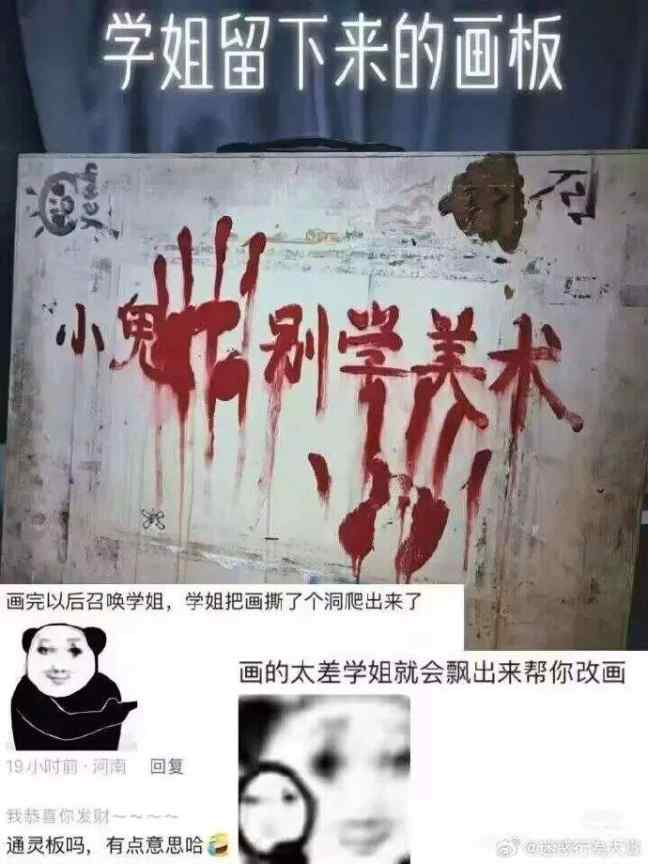 学姐留下来的画板
yeah
小鬼 别学美术
画完以后召唤学姐，学姐把画撕了个洞爬出来了
19小时前·河南 回复
画的太差学姐就会飘出来帮你改画
我恭喜你发财~~~~
通灵板吗，有点意思哈🤣